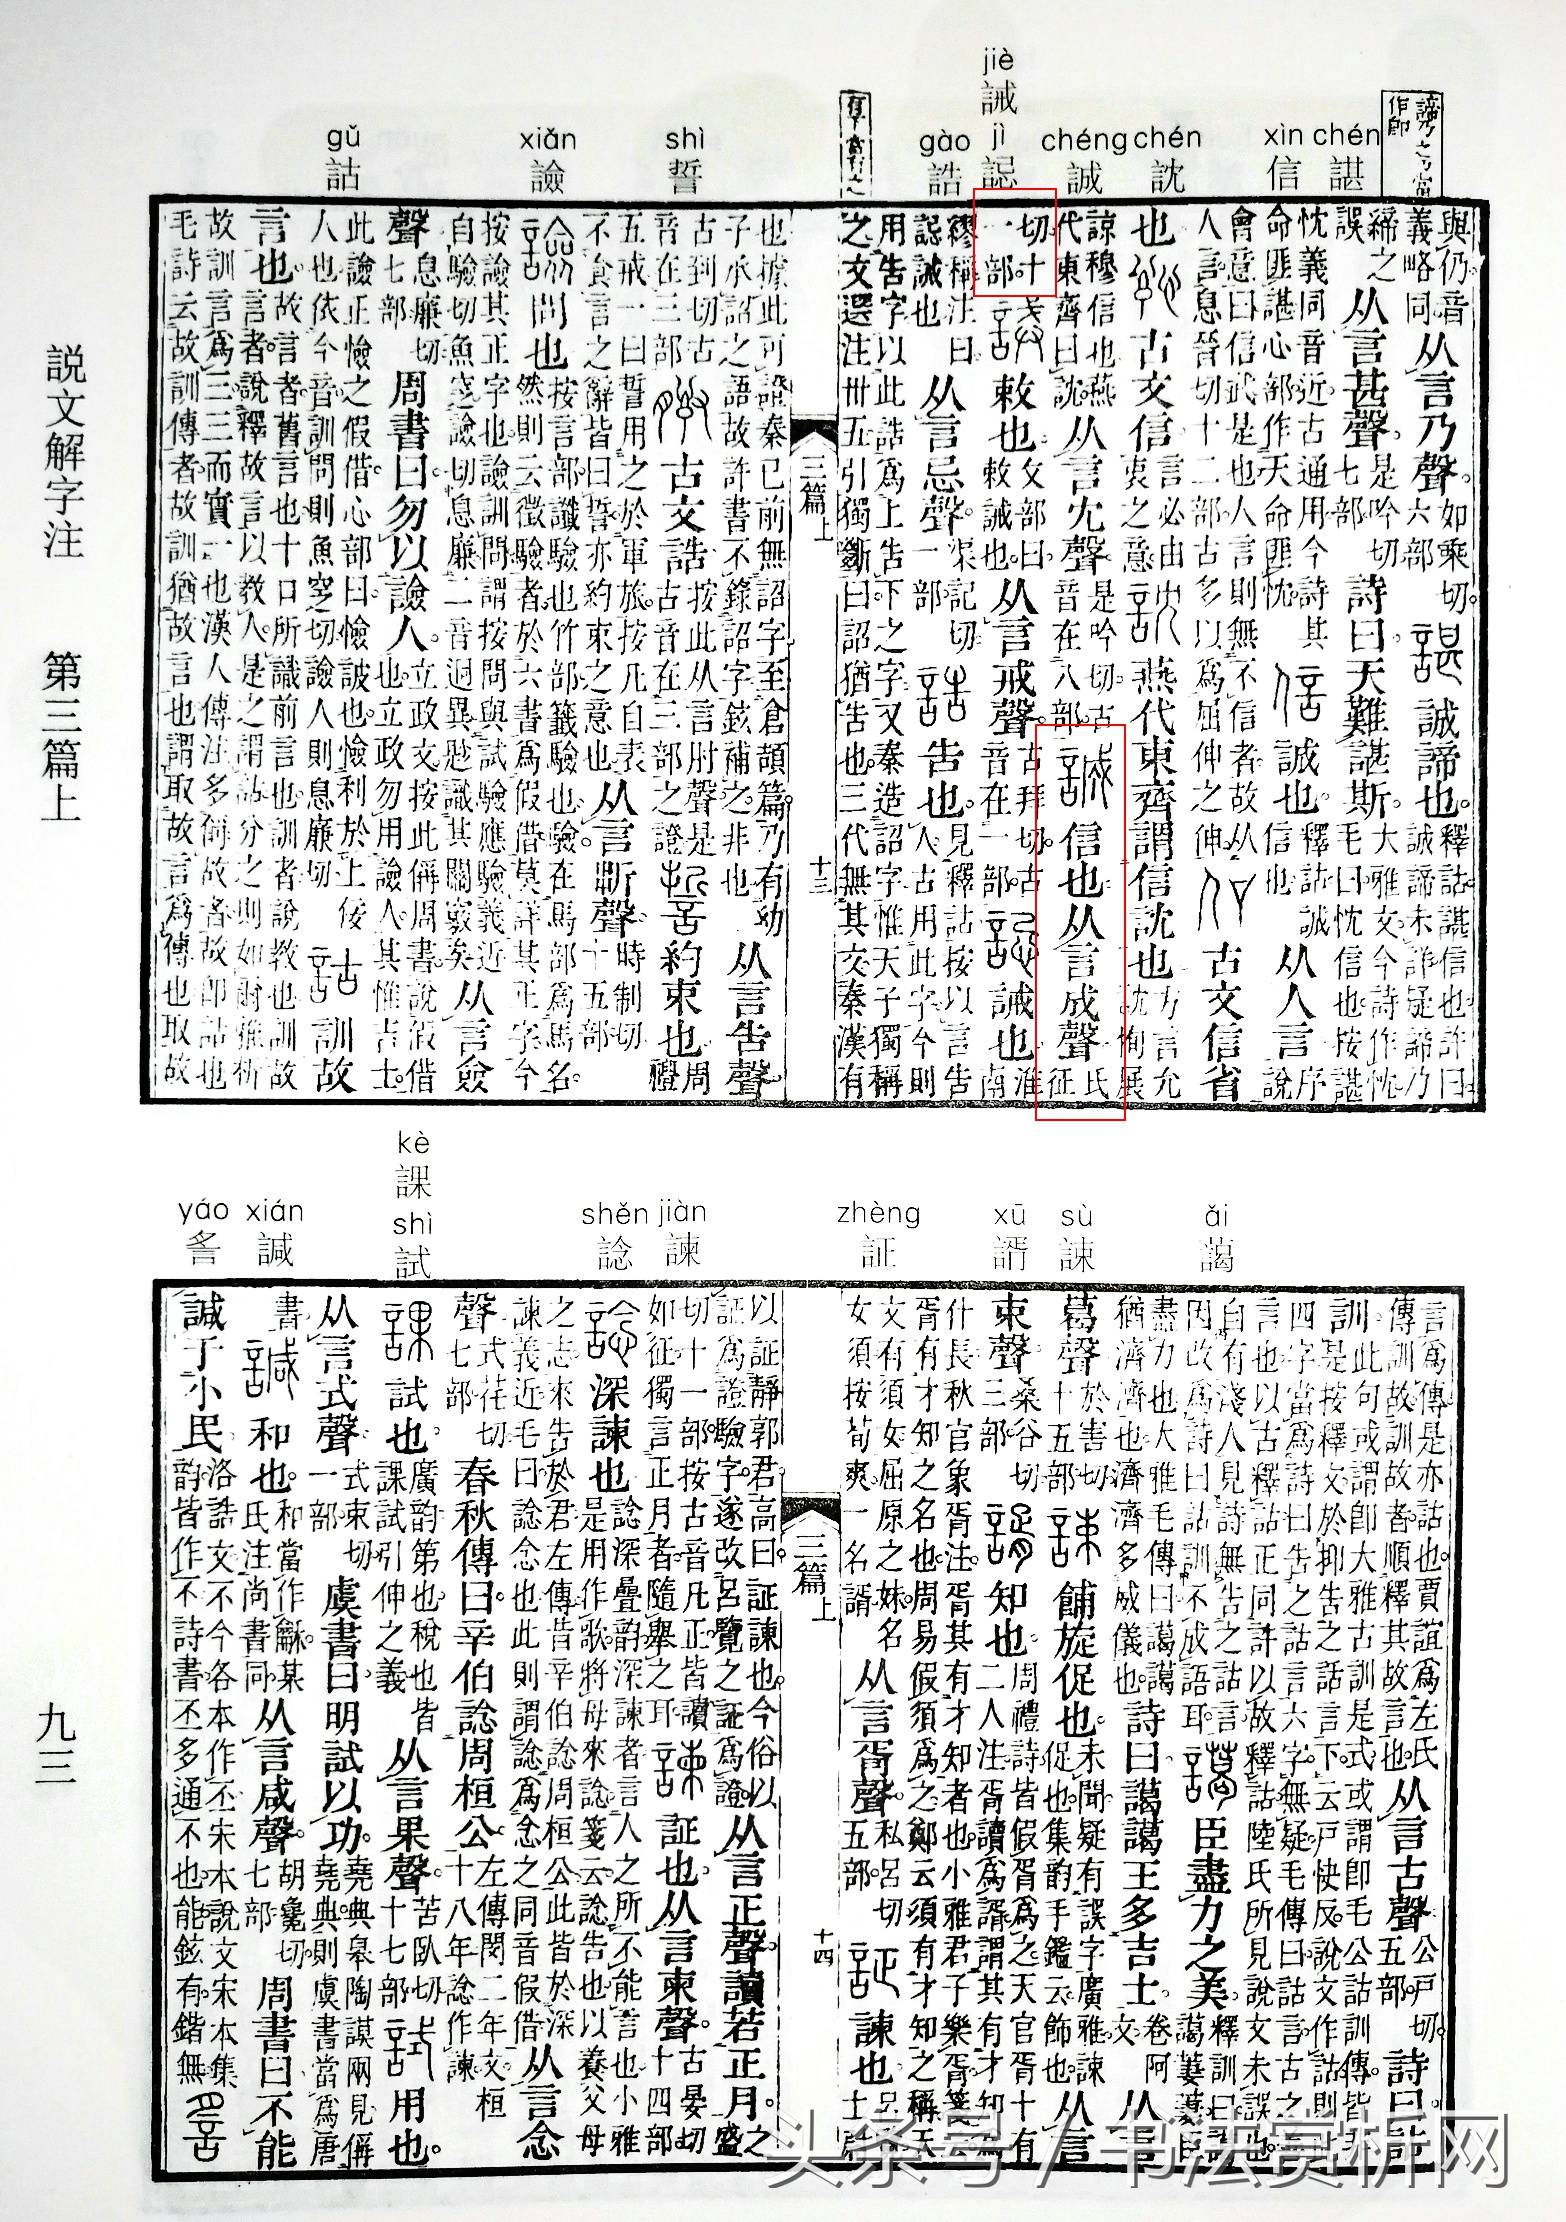 説文解字注　第三篇上
九三
諦乃之誤當作卽
chén 諶
xìn 信
chén 訦
chéng 誠
jiè 誡
jì 誋
gào 誥
shì 誓
xiǎn 譣
gǔ 詁
與仍音義略同从言乃聲。如乘切。六部誠諦也。釋詁諶信也許曰誠諦未詳疑諦乃
諦之誤从言甚聲。是吟切七部詩曰天難諶斯大雅文今詩作忱毛曰忱信也按諶
忱義同音近古通用今詩其命匪諶心部作天命匪忱。誠也。釋詁誠信也从人言序說
會意曰信武是也人言則無不信者故从人言息晉切十二部古多以爲屈伸之伸古文信省
也古文信言必由衷之意燕代東齊謂信訦也方言允訦恂展
諒穆信也燕代東齊曰訦。从言冘聲。是吟切古音在八部信也从言成聲氏征
切十一部。敕也。攴部曰敕誡也。从言戒聲。古拜切。古音在一部。誡也淮南
繆稱注曰誋誡也从言忌聲。渠記切一部告也。見釋詁按以言告人古用此字今則
用告字以此誥爲上告下之字又秦造詔字惟天子獨稱之文選注卅五引獨斷曰詔猶告也三代無其文秦漢有
三篇上　十三
也據此可證秦已前無詔字至倉頡篇乃有幼子承詔之語故許書不錄詔字鉉補之非也从言告聲
古到切古音在三部古文誥按此从言肘聲是古音在三部之證約束也周禮
五戒一曰誓用之於軍旅。按凡自表不食言之辭皆曰誓亦約束之意也从言折聲時制切十五部
問也按言部讖驗也竹部籤驗也。驗在馬部爲馬名。然則云徵驗者於六書爲假借莫詳其正字今
按譣其正字也譣訓問謂按問與試驗應驗義近自驗切魚窆譣切息廉二音迥異尟識其關竅矣从言僉
聲息廉切七部周書曰勿以譣人。立政文按此偁周書說假借也。立政勿用譣人其惟吉士。
此譣正憸之假借心部曰憸詖也憸利於上佞人也依今音訓問則魚窆切譣人則息廉切訓故
言也。故言者舊言也十口所識前言也訓者說教也訓故言者。說釋故言以教人。是之謂詁分之則如爾雅析
故訓言爲三三而實一也漢人傳注多偁故者故卽詁也毛詩云故訓傳者故訓猶故言也謂取故言爲傳也取故
ǎi 藹
sù 諫
xū 諝
zhèng 証
jiàn 諫
shěn 諗
kè 課
shì 試
xián 諴
yáo 䚻
言爲傳是亦詁也賈誼爲左氏傳訓故訓故者順釋其故言也。从言古聲公戶切。五部詩曰詁
訓此句或謂卽大雅古訓是式或謂卽毛公詁訓傳。皆非言是按釋文於抑告之話言下云戶快反說文作詁則此
四字當爲詩曰告之詁言六字無疑毛傳曰詁言古之善言也以古釋詁正同許以故釋詁陸氏所見說文未誤也
自有淺人見詩無告之詁言因改爲詩曰詁訓不成語耳臣盡力之美。釋訓曰藹藹萋萋臣
盡力也大雅毛傳曰藹藹猶濟濟也濟濟多威儀也。詩曰藹藹王多吉士。卷阿文从言
葛聲於害切十五部餔旋促也。未聞疑有誤字廣雅諫促也集韵手鑑云飾也从言
束聲桑谷切三部知也。周禮詩皆假胥爲之天官胥十有二人注胥讀爲諝謂其有才知爲
什長秋官象胥注胥其有才知者也小雅君子樂胥箋云胥有才知之名也周易假須爲之鄭云須有才知之稱天
文有須女屈原之妹名女須按荀爽一名諝从言胥聲。私呂切五部諫也呂
三篇上　十四
以証靜郭君高曰証諫也今俗以証爲證驗字遂改呂覽之証爲證从言正聲讀若正月。之盛
切十一部按古音凡正皆讀如征獨言正月者隨舉之耳証也从言柬聲。古晏切十四部
深諫也諗深疊韵深諫者言人之所不能言也小雅是用作歌將母來諗箋云諗告也以養父母
之志來告於君左傳昔辛伯諗周桓公此皆於深諫義近毛曰諗念也此則謂諗爲念之同音假借从言念
聲式荏切七部春秋傳曰辛伯諗周桓公左傳閔二年文桓十八年諗作諫
試也。廣韵第也稅也皆課試引伸之義从言果聲。苦臥切十七部用也。
从言式聲式束切一部虞書曰明試以功。堯典皋陶謨兩見偁堯典則虞書當爲唐
書和也。和當作龢。某氏注尚書同从言咸聲。胡毚切七部周書曰不能
諴于小民洛誥文不今各本作丕宋本說文宋本集韵皆作不詩書丕多通不也能鉉有鍇無
头条号/书法赏析网